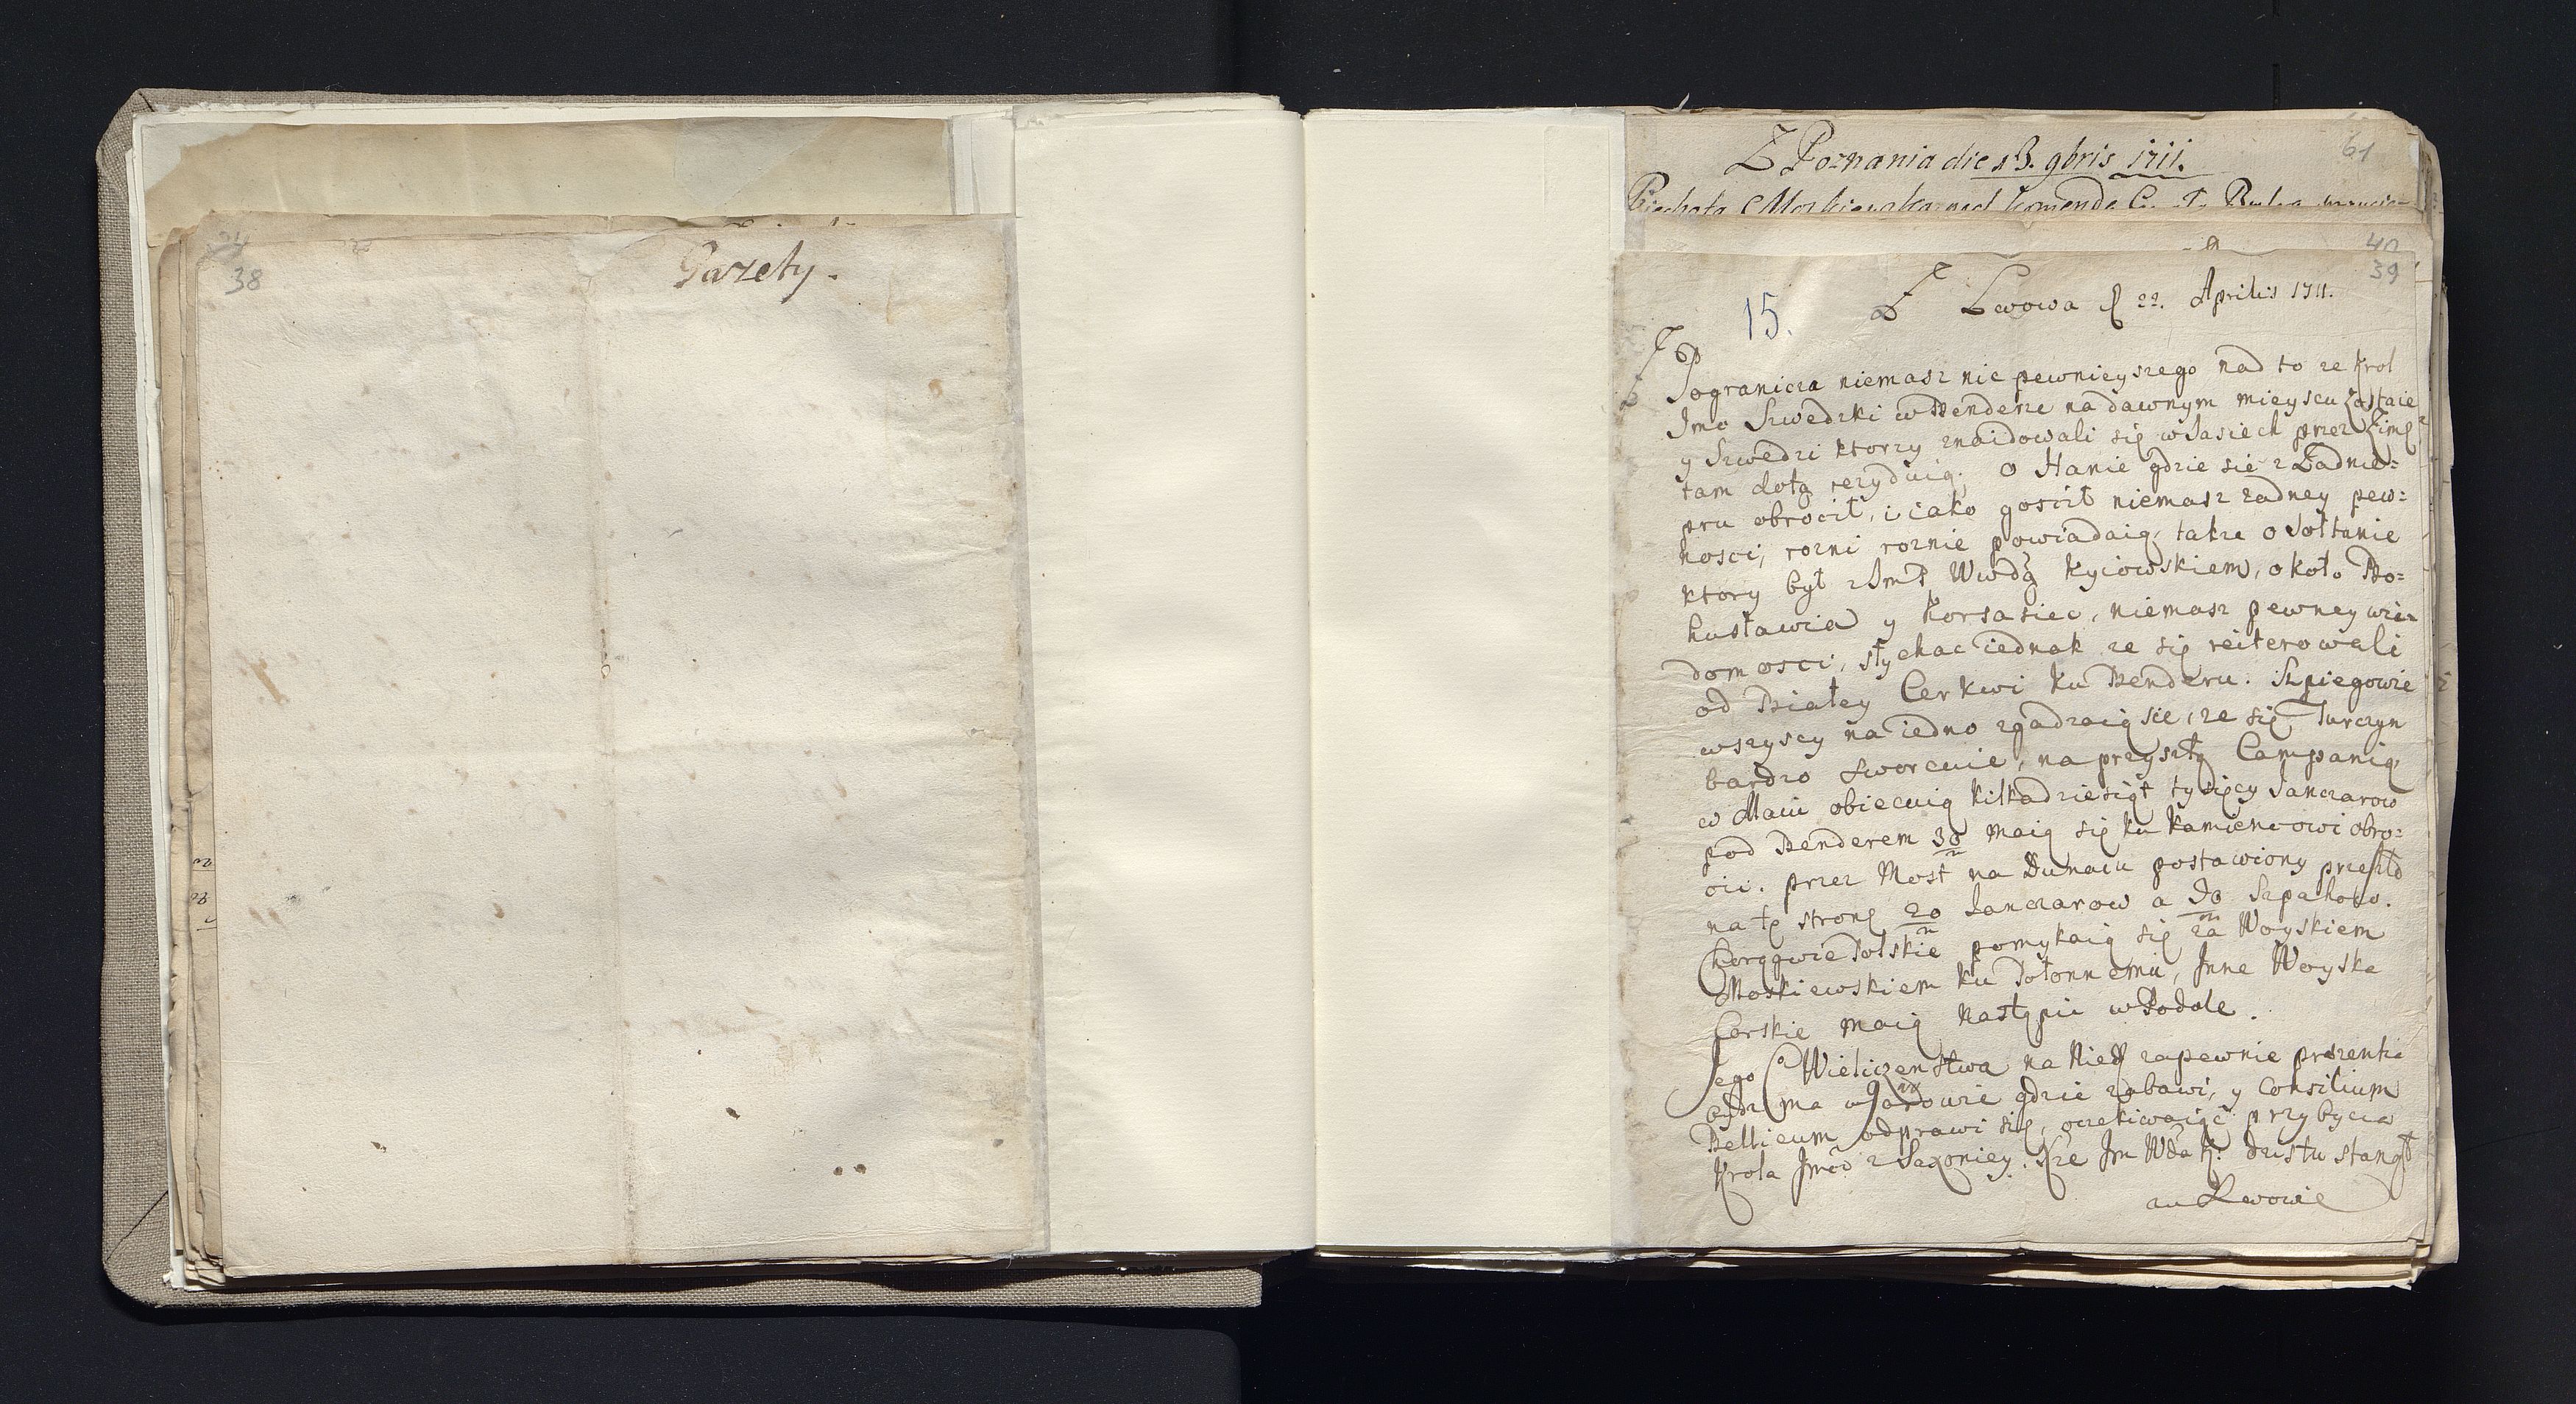 38
Gazety.
Z Poznania die 13. 9bris 1711.
61
Piechota Moskiewska nad komendą
40
39
15.
Z Lwowa d 22. Aprilis 1711.
Z Pogranicza niemasz nic pewnieyszego nad to ze Krol
Jmo Szwedzki w Benderze na dawnym mieyscu zostaie
y Szwedzi ktorzy znaidowali się w Jasiech przez Zimę
tam dotą rezyduią; o Hanie gdzie sie z Zadnie=
pru obrocił, i iako gościł niemasz zadney pew=
nosci, rozni roznie powiadaią, takze o Sołtanie
ktory był z JmP Wwdą Kyiowskiem, około Bo=
husławia y Korsasiec, niemasz pewney wia=
domosci, słychac iednak ze się reiterowali
od Białey Cerkwi ku Benderu. Szpiegowie
wszyscy na iedno zgadzaią sie, ze się Turczyn
bardzo sworcuie, na przyszłą Campanię
w Maiu obiecuią kilkadziesiąt tysięcy Janczarow
pod Benderem 30 maią się ku Kamiencowi obro=
cić. przez Most na Dunaiu postawiony przeszło
na tę stronę 20 Janczarow a 30 Szpahow.
Chorągwie Polskie pomykaią się za Woyskiem
Moskiewskiem ku Połonnemu, Inne Woyska
Carskie maią nastąpic w Podole.
Jego C Wieliczenstwa na Nied zapewnie prezenti
bydz ma w Jaworowie gdzie zabawi, y Consilium
Bellicum odprawi się, oczekiwaiąc przybycia
Krola Jmći z Saxoniey. Jm Wda K: dzis tu stanął
au Lwowie